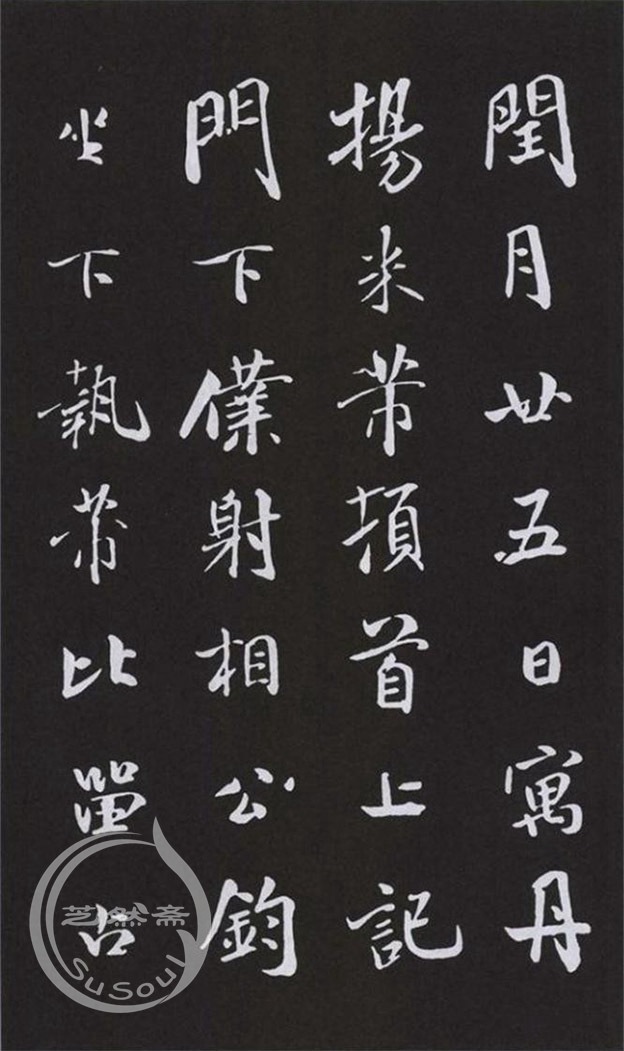 閏月廿五日寓丹
揚米芾頓首上記
門下僕射相公鈞
坐下執芾比占
芝然斋
SuSoul